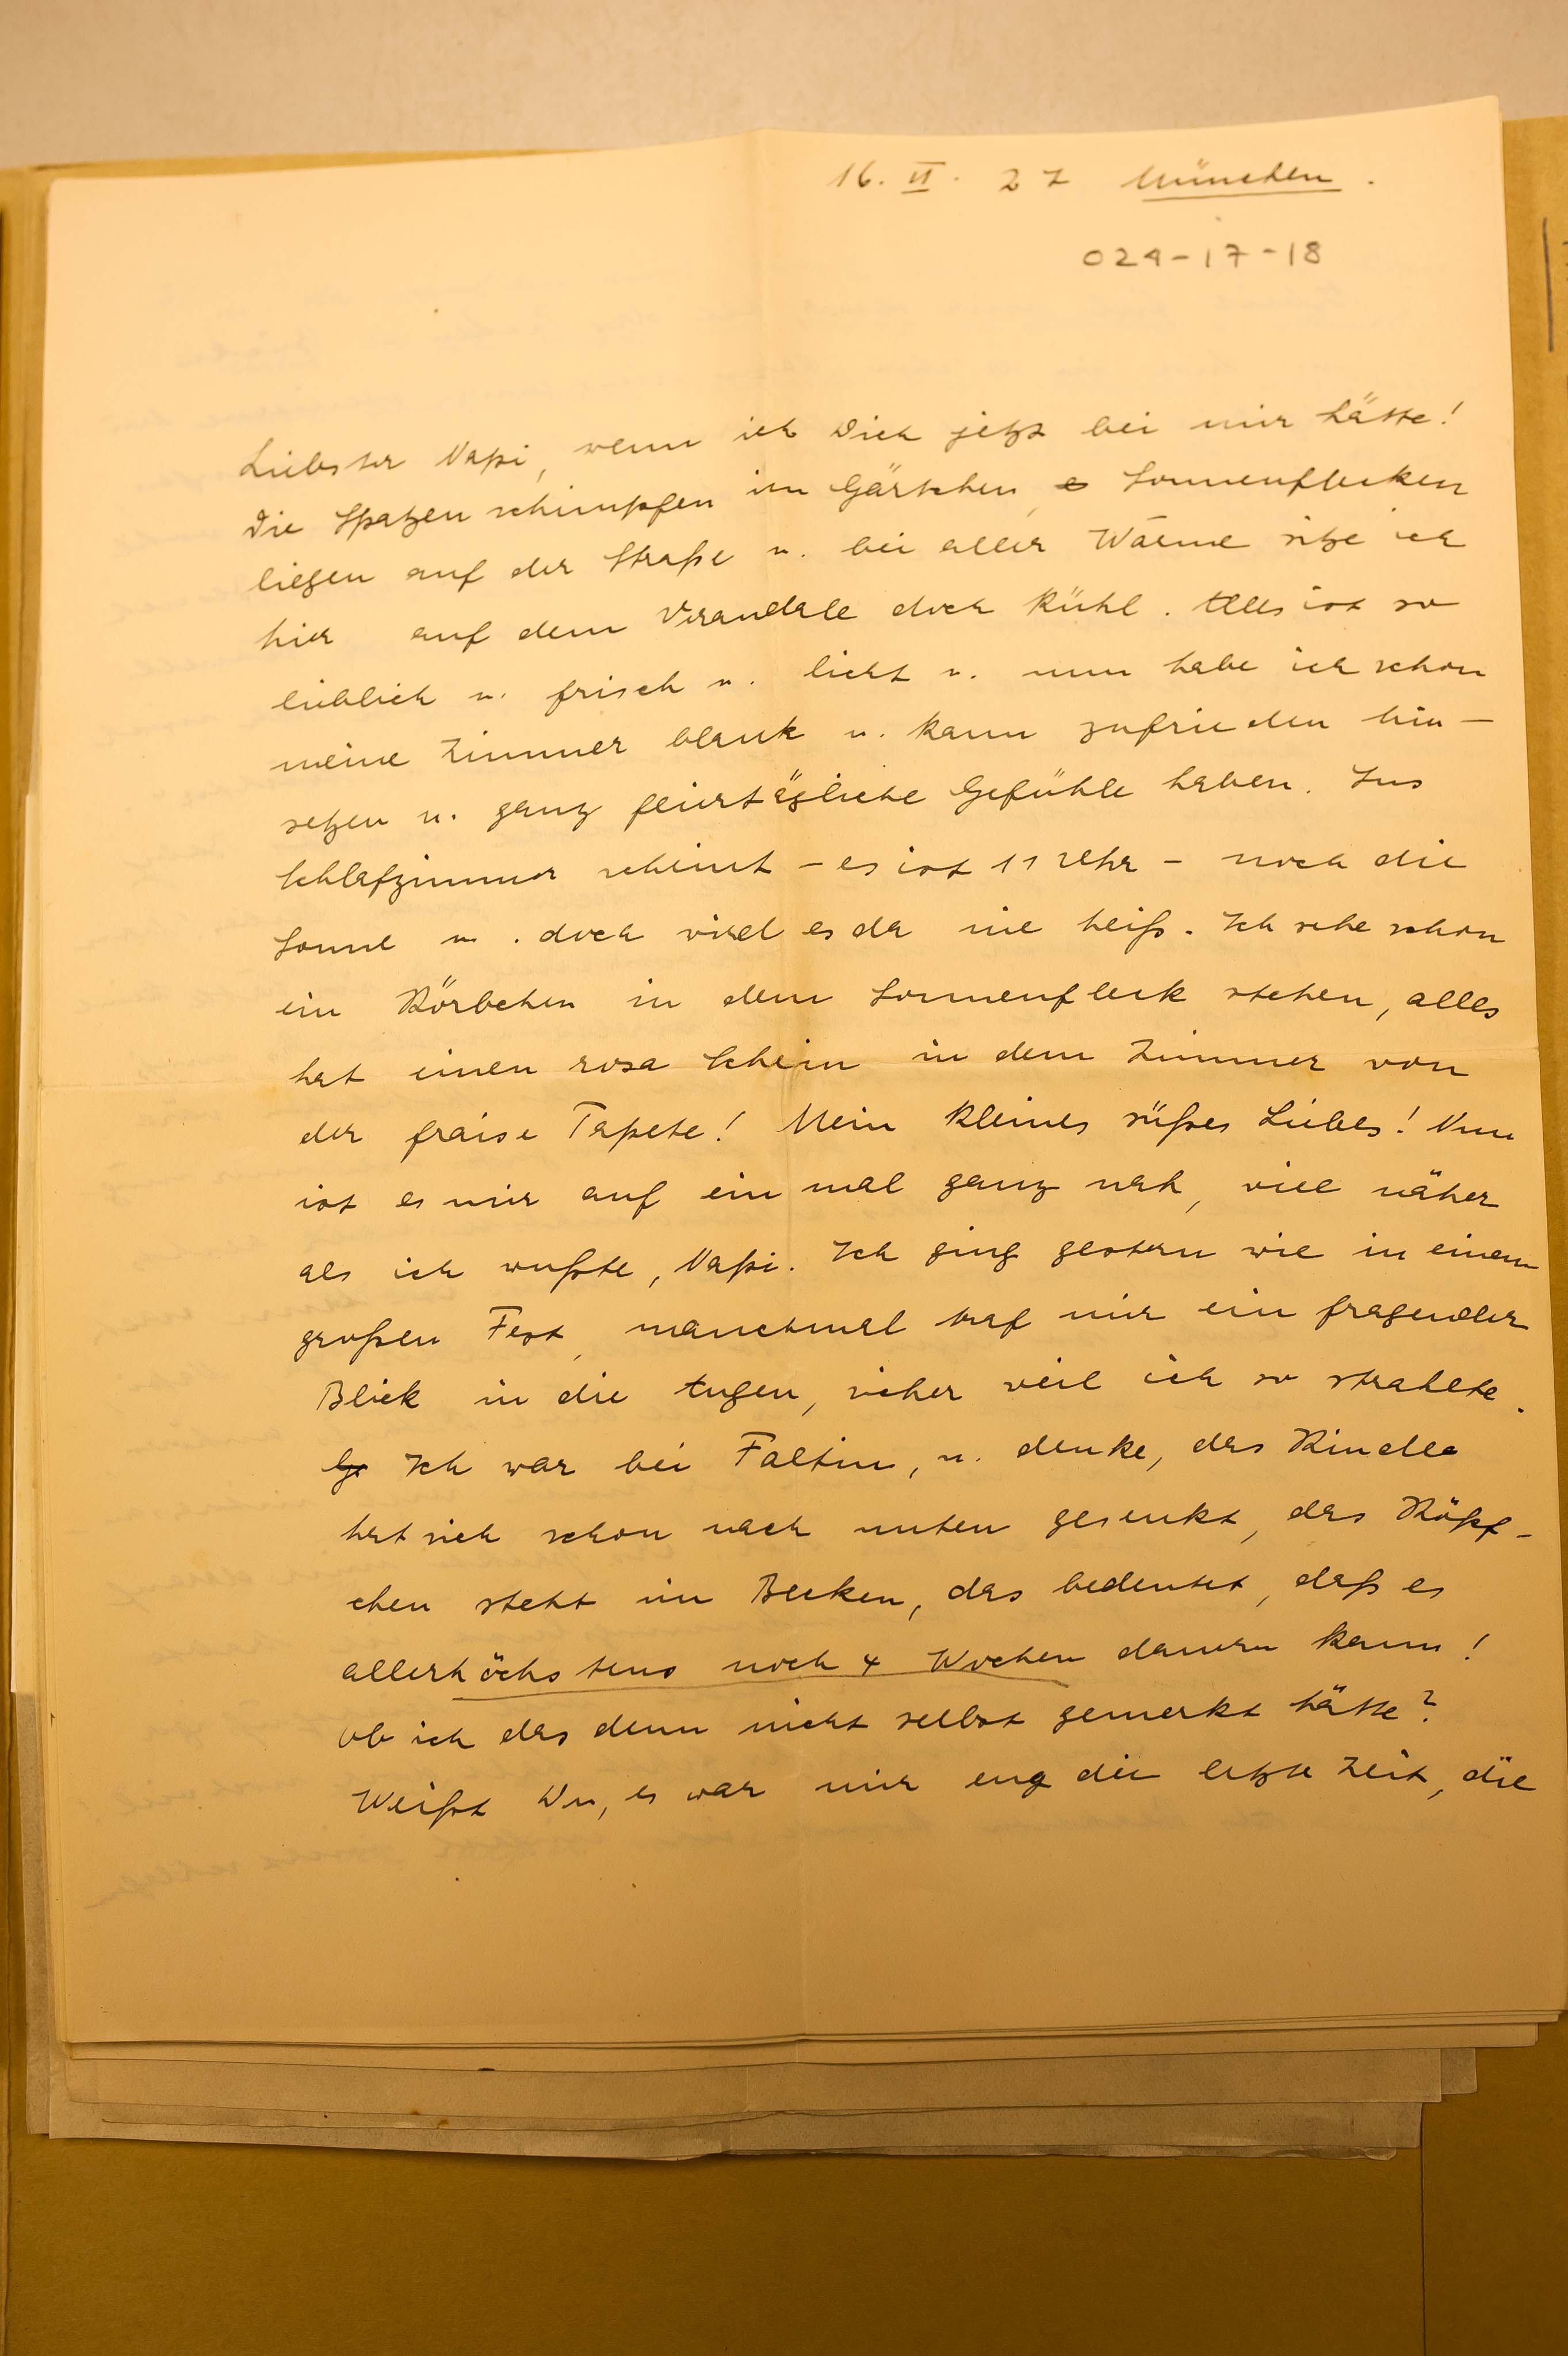 16. VI. 27 München.
024-17-18
Liebster Napi, wenn ich Dich jetzt bei mir hätte!
Die Spatzen schimpfen im Gärtchen, Sonnenflecken
liegen auf der Straße u. bei aller Wärme sitze ich
hier auf dem Verandale doch kühl. Alles ist so
lieblich u. frisch u. licht u. nun habe ich schon
meine Zimmer blank u. kann zufrieden hin-
setzen u. ganz feiertägliche Gefühle haben. Ins
Schlafzimmer scheint - es ist 11 Uhr - noch die
Sonne u. doch wird es da nie heiß. Ich sehe schon
ein Körbchen in dem Sonnenfleck stehen, alles
hat einen rosa Schein in dem Zimmer von
der fraise Tapete! Mein kleines süßes Liebes! Nun
ist es mir auf ein mal ganz nah, viel näher
als ich wußte, Napi. Ich ging gestern wie in einem
großen Fest, manchmal traf mir ein fragender
Blick in die Augen, sicher weil ich so strahlte.
Ich war bei Faltin, u. denke, das Kindle
hat sich schon nach unten gesenkt, das Köpf-
chen steht im Becken, das bedeutet, daß es
allerhöchstens noch 4 Wochen dauern kann!
Ob ich das denn nicht selbst gemerkt hätte?
Weißt Du, es war mir eng die letzte Zeit, die